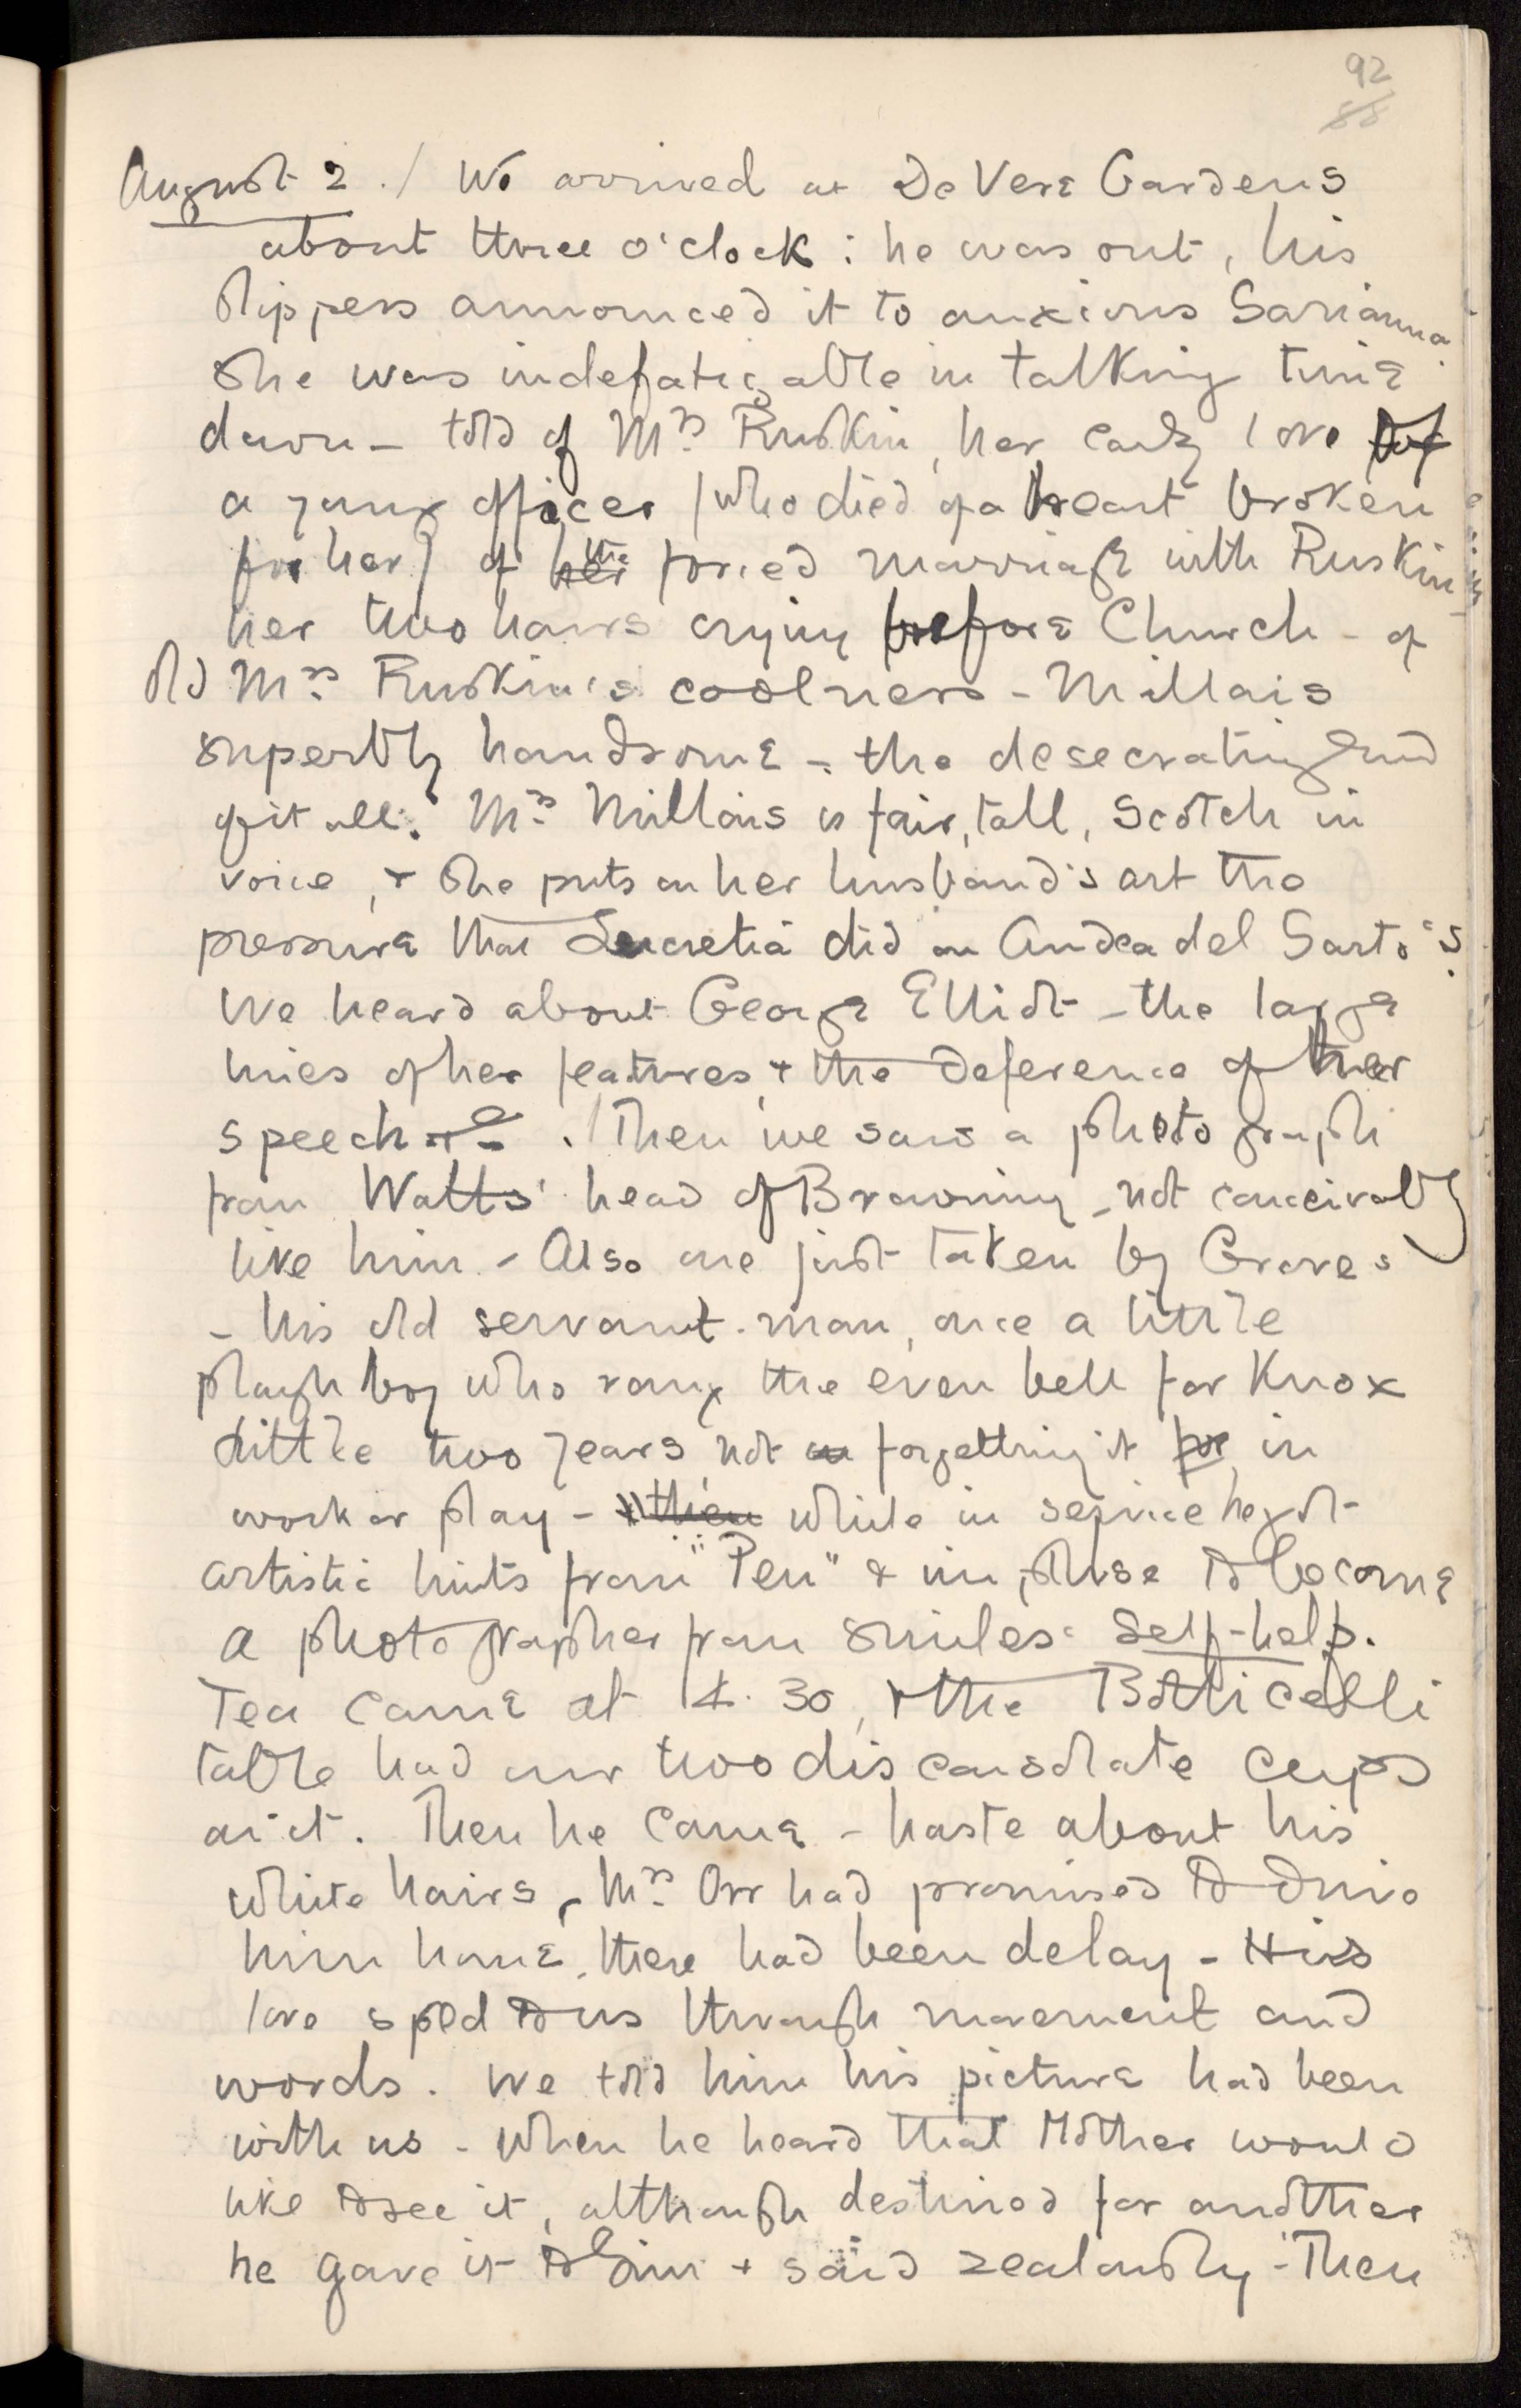 92
88
August 2. / We arrived at De Vere Gardens
about three o'clock: he was out, his
slippers announced it to anxious Sarianna.
She was indefatigable in talking time
down - told of Mrs Ruskin, her early love of
a young officer (who died of a heart broken
for her) of her the forced marriage with Ruskin -
her two hours crying before Church - of
old Mrs Ruskin's coolness - Millais
superbly handsome - the desecrating end
of it all. Mrs Millais is fair, tall, Scotch in
voice, & she puts on her husband's art the
pressure that Lucretia did on Andrea del Sarto's.
We heard about George Elliot - the large
lines of her features, & the deference of her
speech. / Then we saw a photograph
from Watts' head of Browning - not conceivably
like him. - Also one just taken by Groves
- his old servant-man, once a little
plough boy who rang the even bell for Knox
Little two years, not forgetting it for in
work or play - then while in service he got
artistic hints from "Pen" & impulse to become
a photographer from Smiles' Self-help.
Tea came at 4.30, & the Botticelli
table had our two disconsolate cups
on it. Then he came - haste about his
white hairs, Mrs Orr had promised to drive
him home, there had been delay - His
love sped to us through movement and
words. We told him his picture had been
with us - When he heard that Mother would
like to see it, although destined for another
he gave it to Sim & said zealously - Then